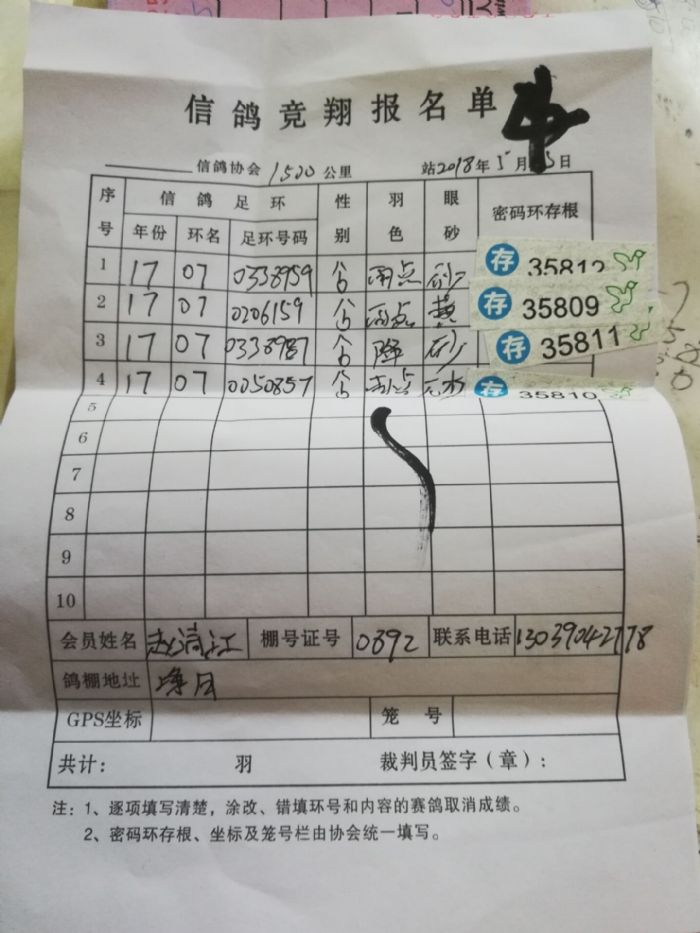 信鸽竞翔报名单
信鸽协会 1500 公里 站2018年5月 日
序号 信鸽足环 性别 羽色 眼砂 密码环存根
年份 环名 足环号码
1 17 07 0338959 公 雨点 砂 存 35812
2 17 07 0206159 公 雨点 黄 存 35809
3 17 07 0338987 公 降 砂 存 35811
4 17 07 0050857 公 点 存 35810
5
6
7
8
9
10
会员姓名 赵 江 棚号证号 0392 联系电话 13039042778
鸽棚地址 净月
GPS坐标 笼号
共计： 羽 裁判员签字（章）：
注：1、逐项填写清楚，涂改、错填环号和内容的赛鸽取消成绩。
2、密码环存根、坐标及笼号栏由协会统一填写。